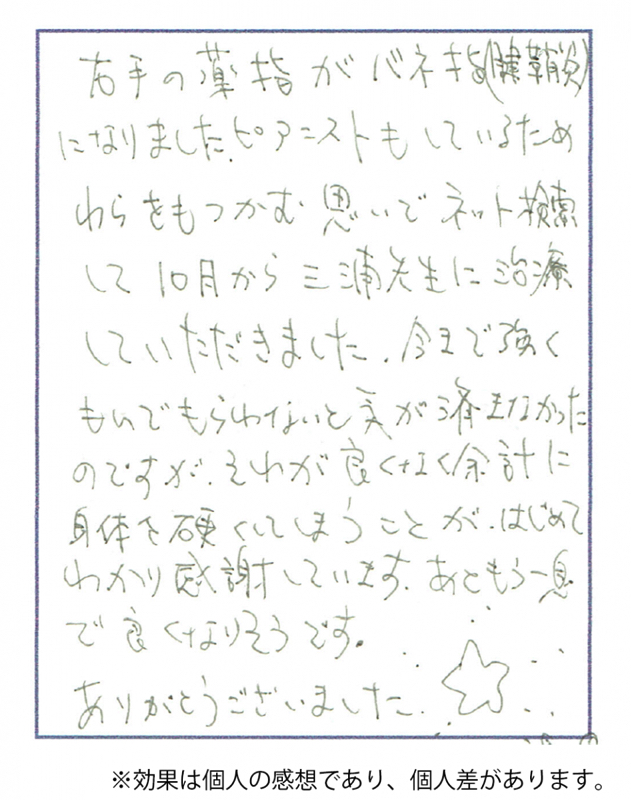 右手の薬指がバネ指(腱鞘炎)
になりました。ピアニストもしているため
わらをもつかむ思いでネット検索
して10月から三浦先生に治療
していただきました。今まで強く
もんでもらわないと気が済まなかった
のですが、それが良くなく余計に
身体を硬くしてしまうことが、はじめて
わかり感謝しています。あともう一息
で良くなりそうです。
ありがとうございました。
※効果は個人の感想であり、個人差があります。